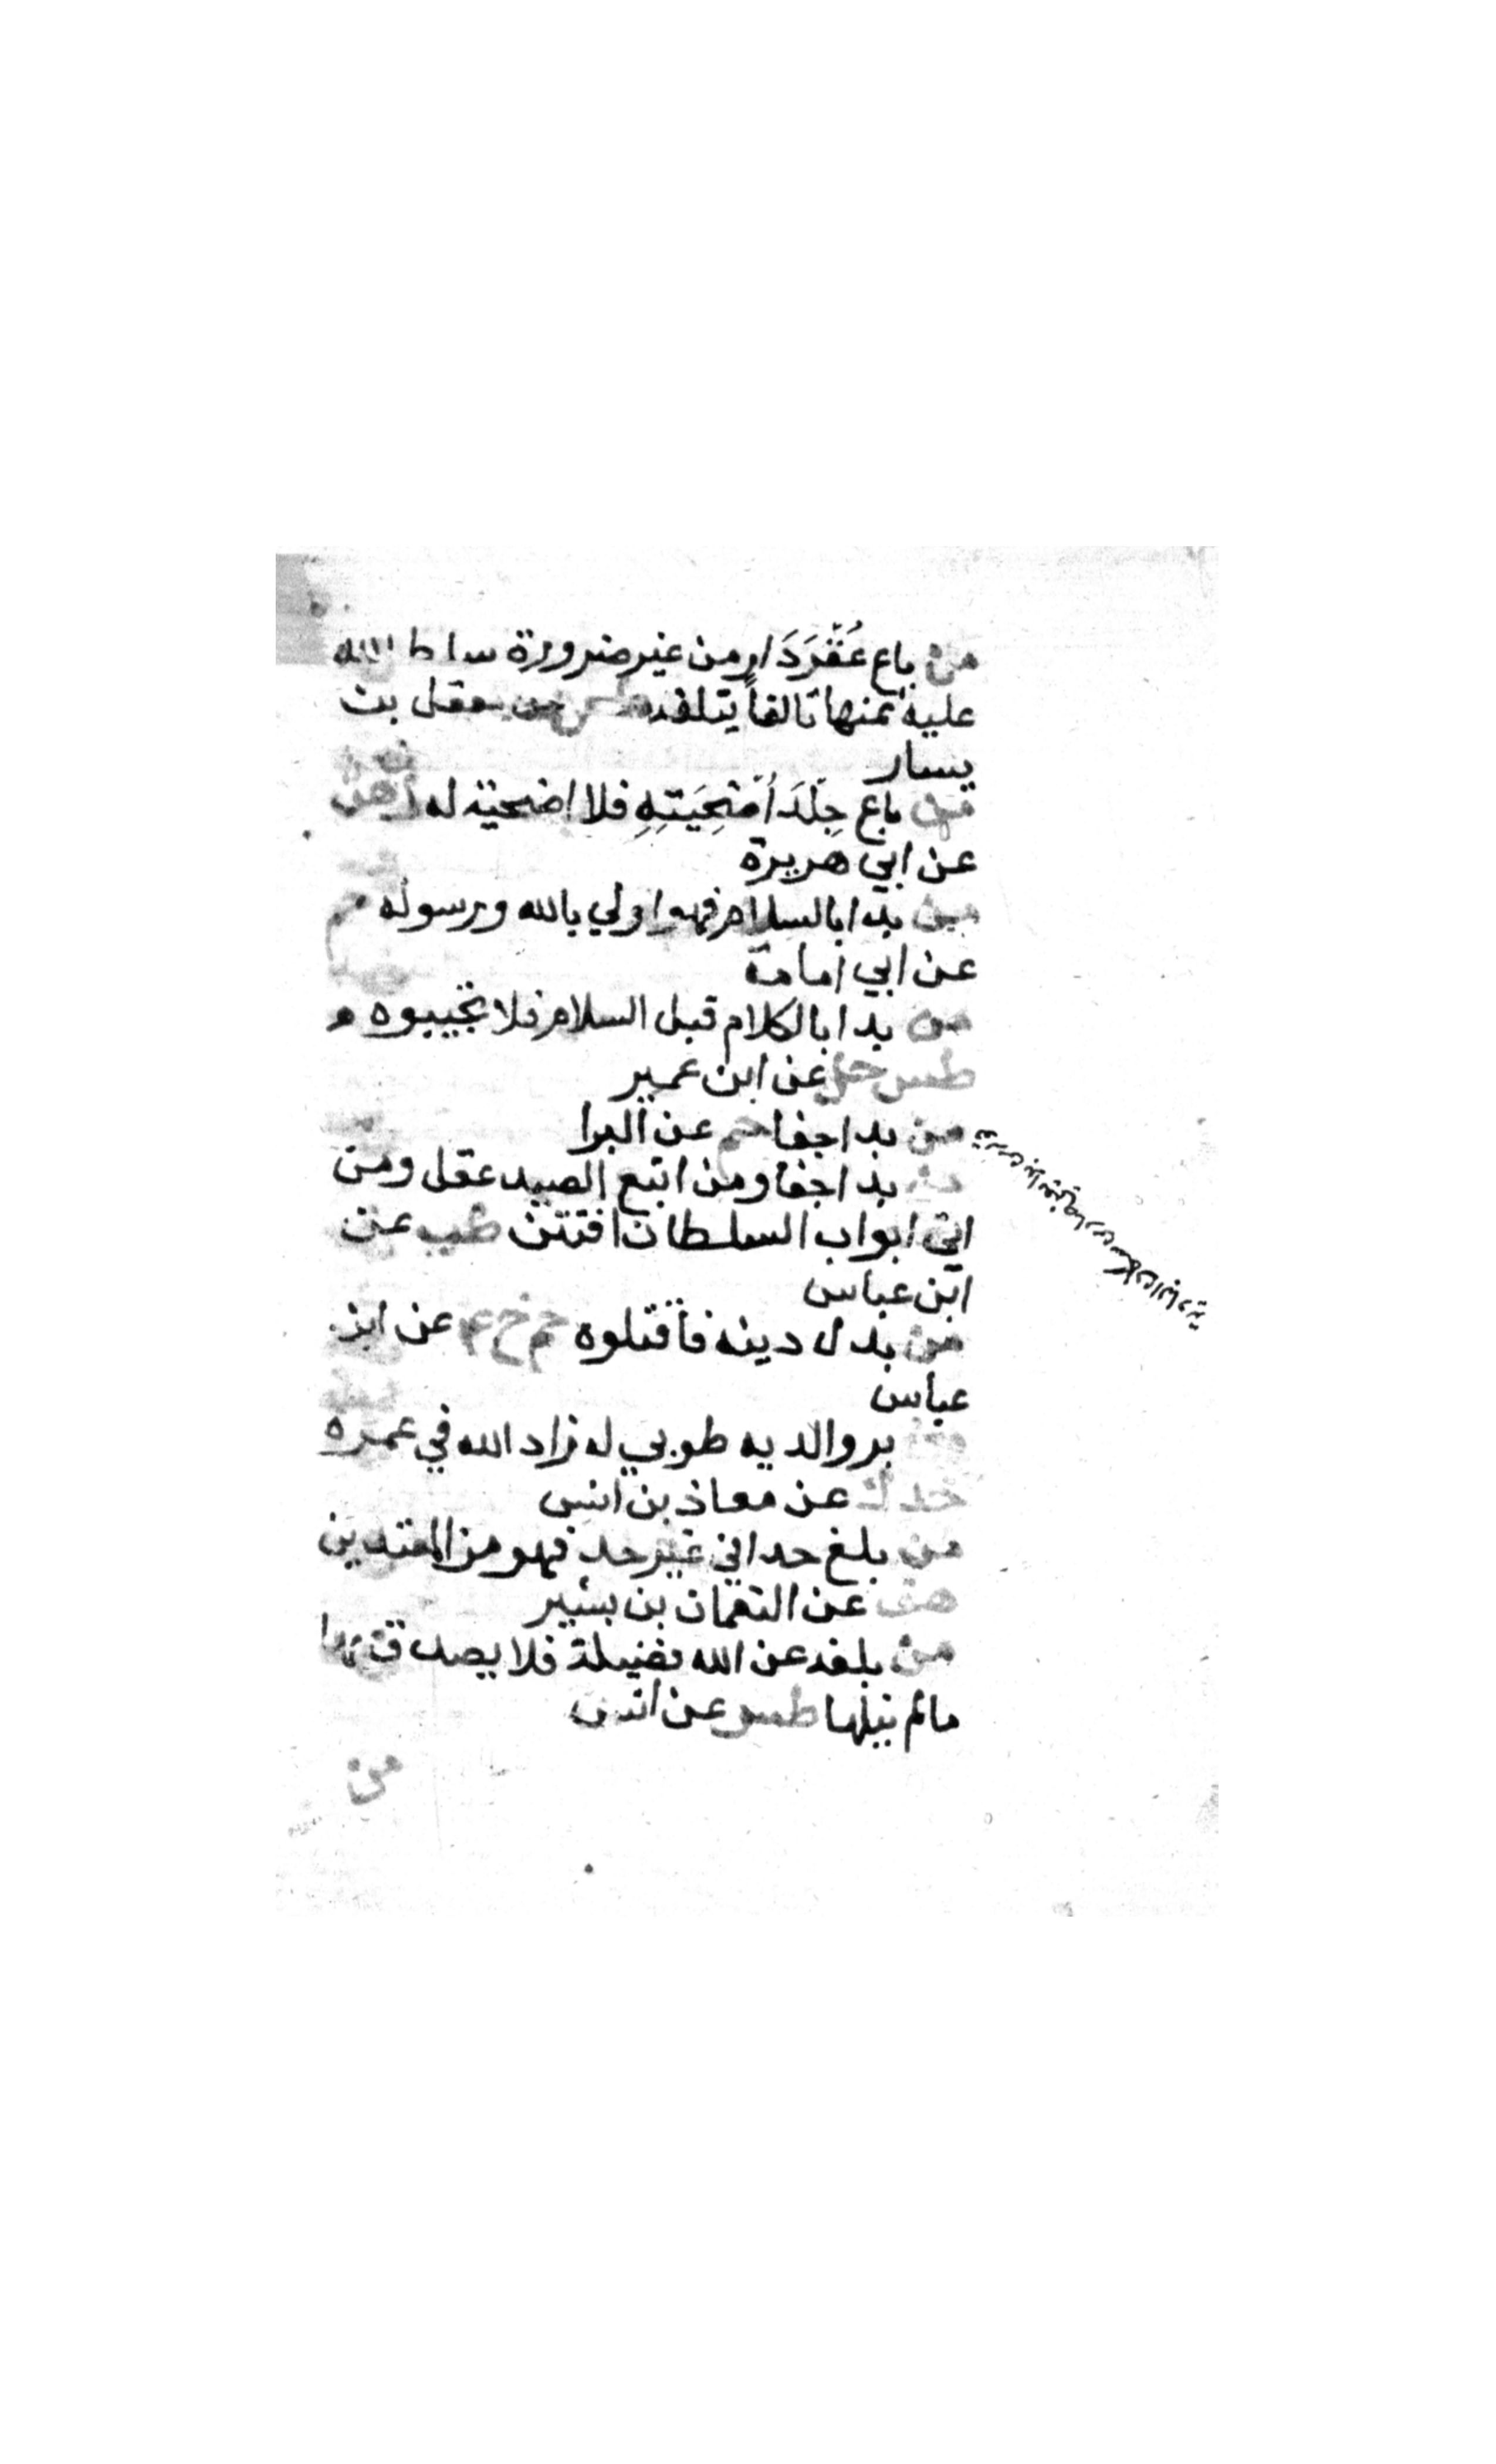 من باع عُقْرَدَارٍ من غير ضرورة سلط الله
عليه ثمنها تالفاً يتلفه طس عن معقل بن
يسار
من باع جِلْدَ أُضْحِيَتِهِ فلا اضحية له ك هق
عن ابي هريرة
من بدا بالسلام فهو اولي بالله ورسوله حم
عن ابي امامة
من بدا بالكلام قبل السلام فلا تجيبوه
طس حل عن ابن عمير
من بدا جفا حم عن البرا
من بدا جفا ومن اتبع الصيد عقل ومن
اتي ابواب السلطان افتتن طب عن
ابن عباس
من بدل دينه فاقتلوه حم خ عم عن ابن
عباس
من بر والديه طوبي له زاد الله في عمره
خد ك عن معاذ بن انس
من بلغ حدا في غير حد فهو من المعتدين
هق عن النعمان بن بشير
من بلغه عن الله فضيلة فلا يصدق بها
مالم ينلها طس عن انس
من